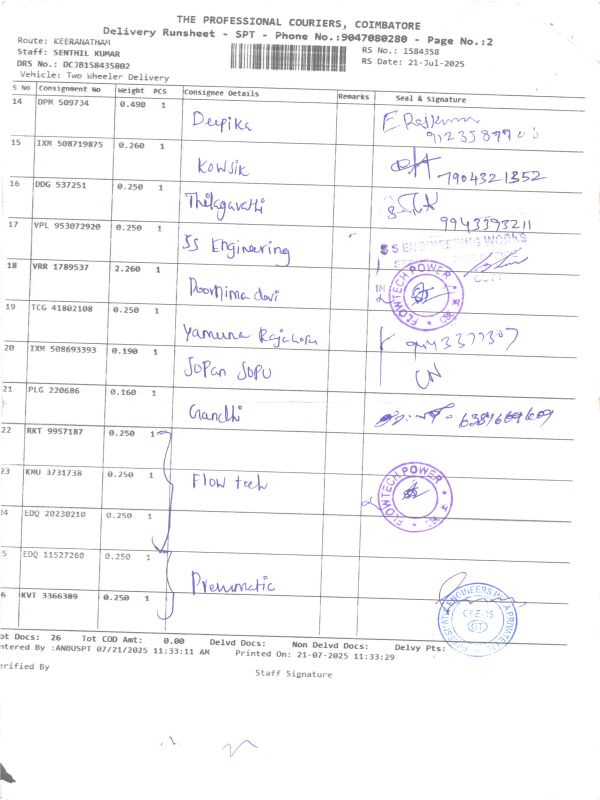 THE PROFESSIONAL COURIERS, COIMBATORE
Delivery Runsheet - SPT - Phone No.:9047080280 - Page No.:2
Route: KEERANATHAM
Staff: SENTHIL KUMAR
DRS No.: DCJB158435802
Vehicle: Two Wheeler Delivery
RS No.: 1584358
RS Date: 21-Jul-2025
S No Consignment No Weight PCS Consignee Details Remarks Seal & Signature
14 DPM 509734 0.490 1 Deepika
15 IXM 508719875 0.260 1 Kowsik 7904321352
16 DDG 537251 0.250 1 Thilagavathi 9943593211
17 VPL 953072920 0.250 1 SS Engineering S S ENGINEERING WORKS
18 VRR 1789537 2.260 1 Poornima devi FLOWTECH POWER
19 TCG 41802108 0.250 1 Yamuna
20 IXM 508693393 0.190 1 Sopan Sopu CN
21 PLG 220686 0.160 1 Gandhi
22 RKT 9957187 0.250 1
23 KMU 3731738 0.250 1 Flow tech FLOWTECH POWER
24 EDQ 20230210 0.250 1
5 EDQ 11527260 0.250 1
6 KVT 3366389 0.250 1 Pneumatic ENGINEERS PRIVATE
ot Docs: 26 Tot COD Amt: 0.00 Delvd Docs: Non Delvd Docs: Delvy Pts:
ntered By :ANBUSPT 07/21/2025 11:33:11 AM Printed On: 21-07-2025 11:33:29
erified By
Staff Signature